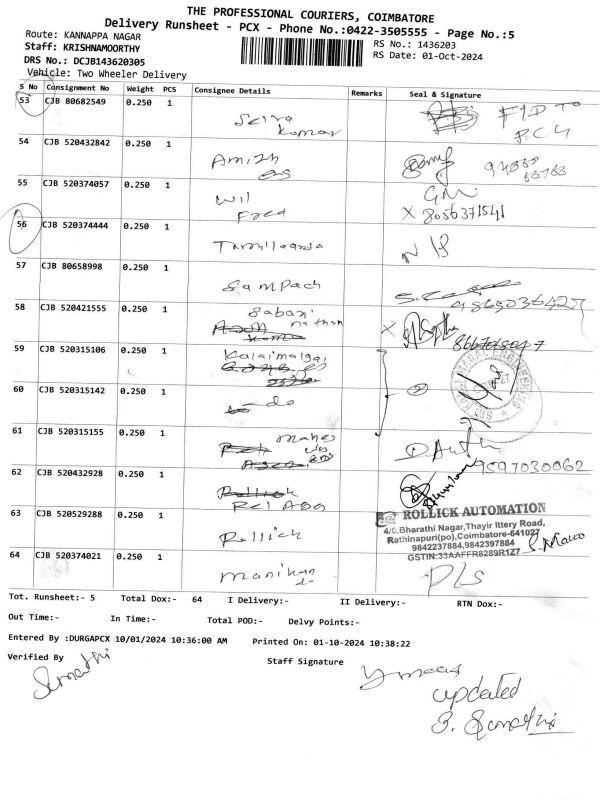 THE PROFESSIONAL COURIERS, COIMBATORE
Delivery Runsheet - PCX - Phone No.:0422-3505555 - Page No.:5
Route: KANNAPPA NAGAR
RS No.: 1436203
Staff: KRISHNAMOORTHY
RS Date: 01-Oct-2024
DRS No.: DCJB143620305
Vehicle: Two Wheeler Delivery
S No Consignment No Weight PCS Consignee Details Remarks Seal & Signature
53 CJB 80682549 0.250 1 Selva
Kumar
54 CJB 520432842 0.250 1
55 CJB 520374057 0.250 1 Wil
Fred
X 8056371541
56 CJB 520374444 0.250 1
57 CJB 80658998 0.250 1 Sampach
9865036427
58 CJB 520421555 0.250 1 Sabari
nathan
59 CJB 520315106 0.250 1 Kalaimalgal
60 CJB 520315142 0.250 1 do
61 CJB 520315155 0.250 1
9597030062
62 CJB 520432928 0.250 1
63 CJB 520529288 0.250 1 Rollick
ROLLICK AUTOMATION
4/6,Bharathi Nagar,Thayir Ittery Road,
Rathinapuri(po),Coimbatore-641027
9842237884,9842397884
GSTIN:33AAFFR8289R1Z7
64 CJB 520374021 0.250 1 Manikan
DLS
Tot. Runsheet:- 5 Total Dox:- 64 I Delivery:- II Delivery:- RTN Dox:-
Out Time:- In Time:- Total POD:- Delvy Points:-
Entered By :DURGAPCX 10/01/2024 10:36:00 AM Printed On: 01-10-2024 10:38:22
Verified By Staff Signature
updated